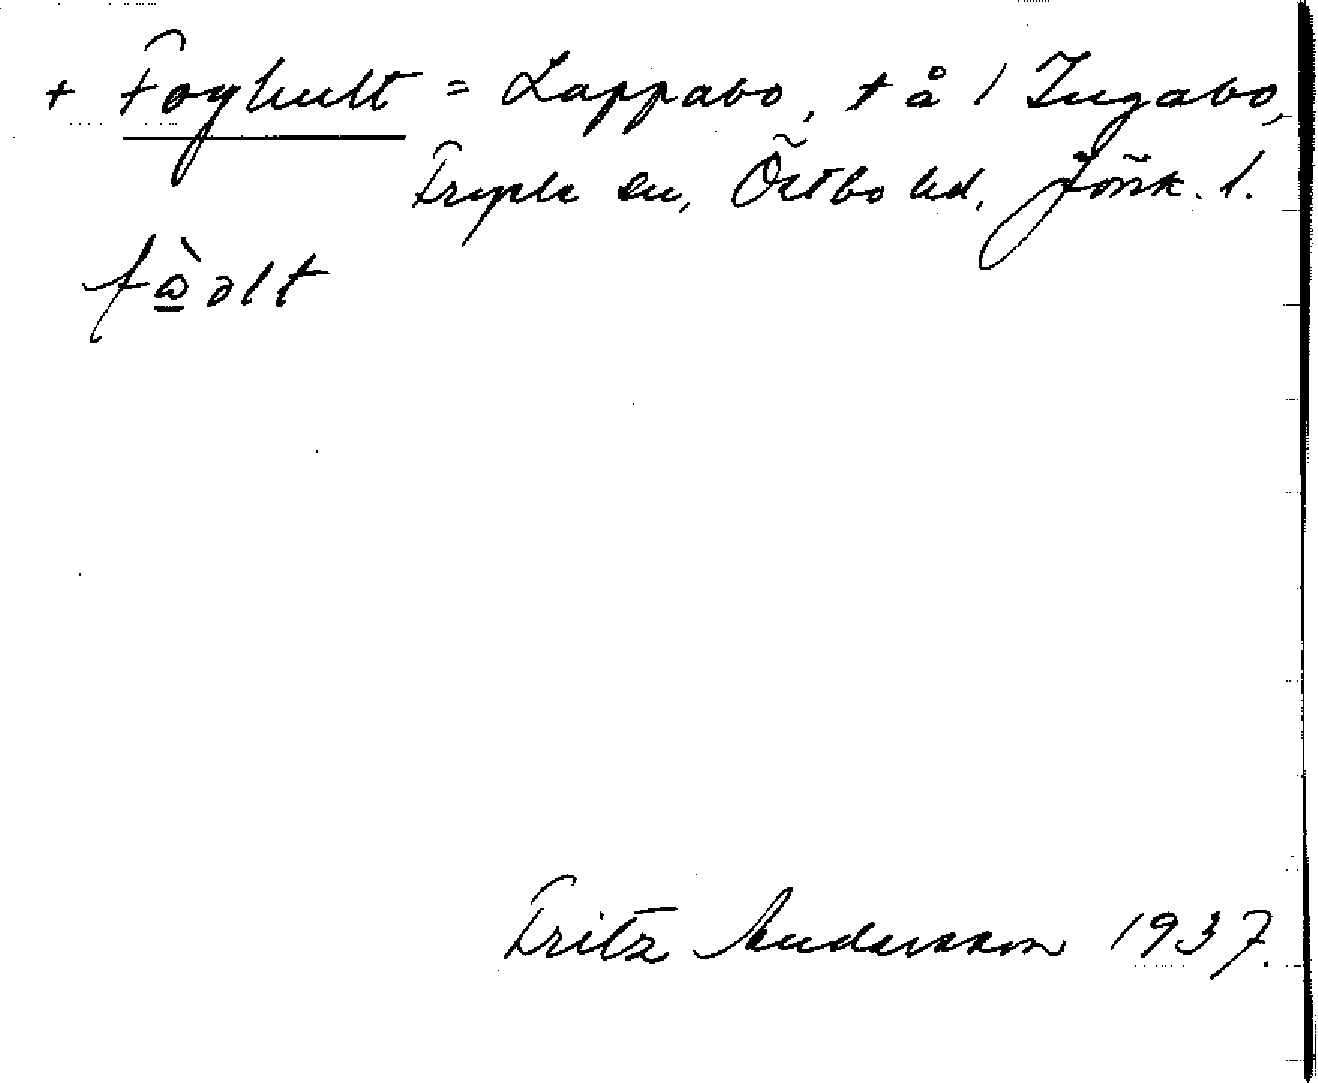 + Foghult = Lappabo, + å / Ingabo,
Fryele sn, Östbo hd, Jönk. l.
fὼ̲ əlt
Fritz Andersson 1937.